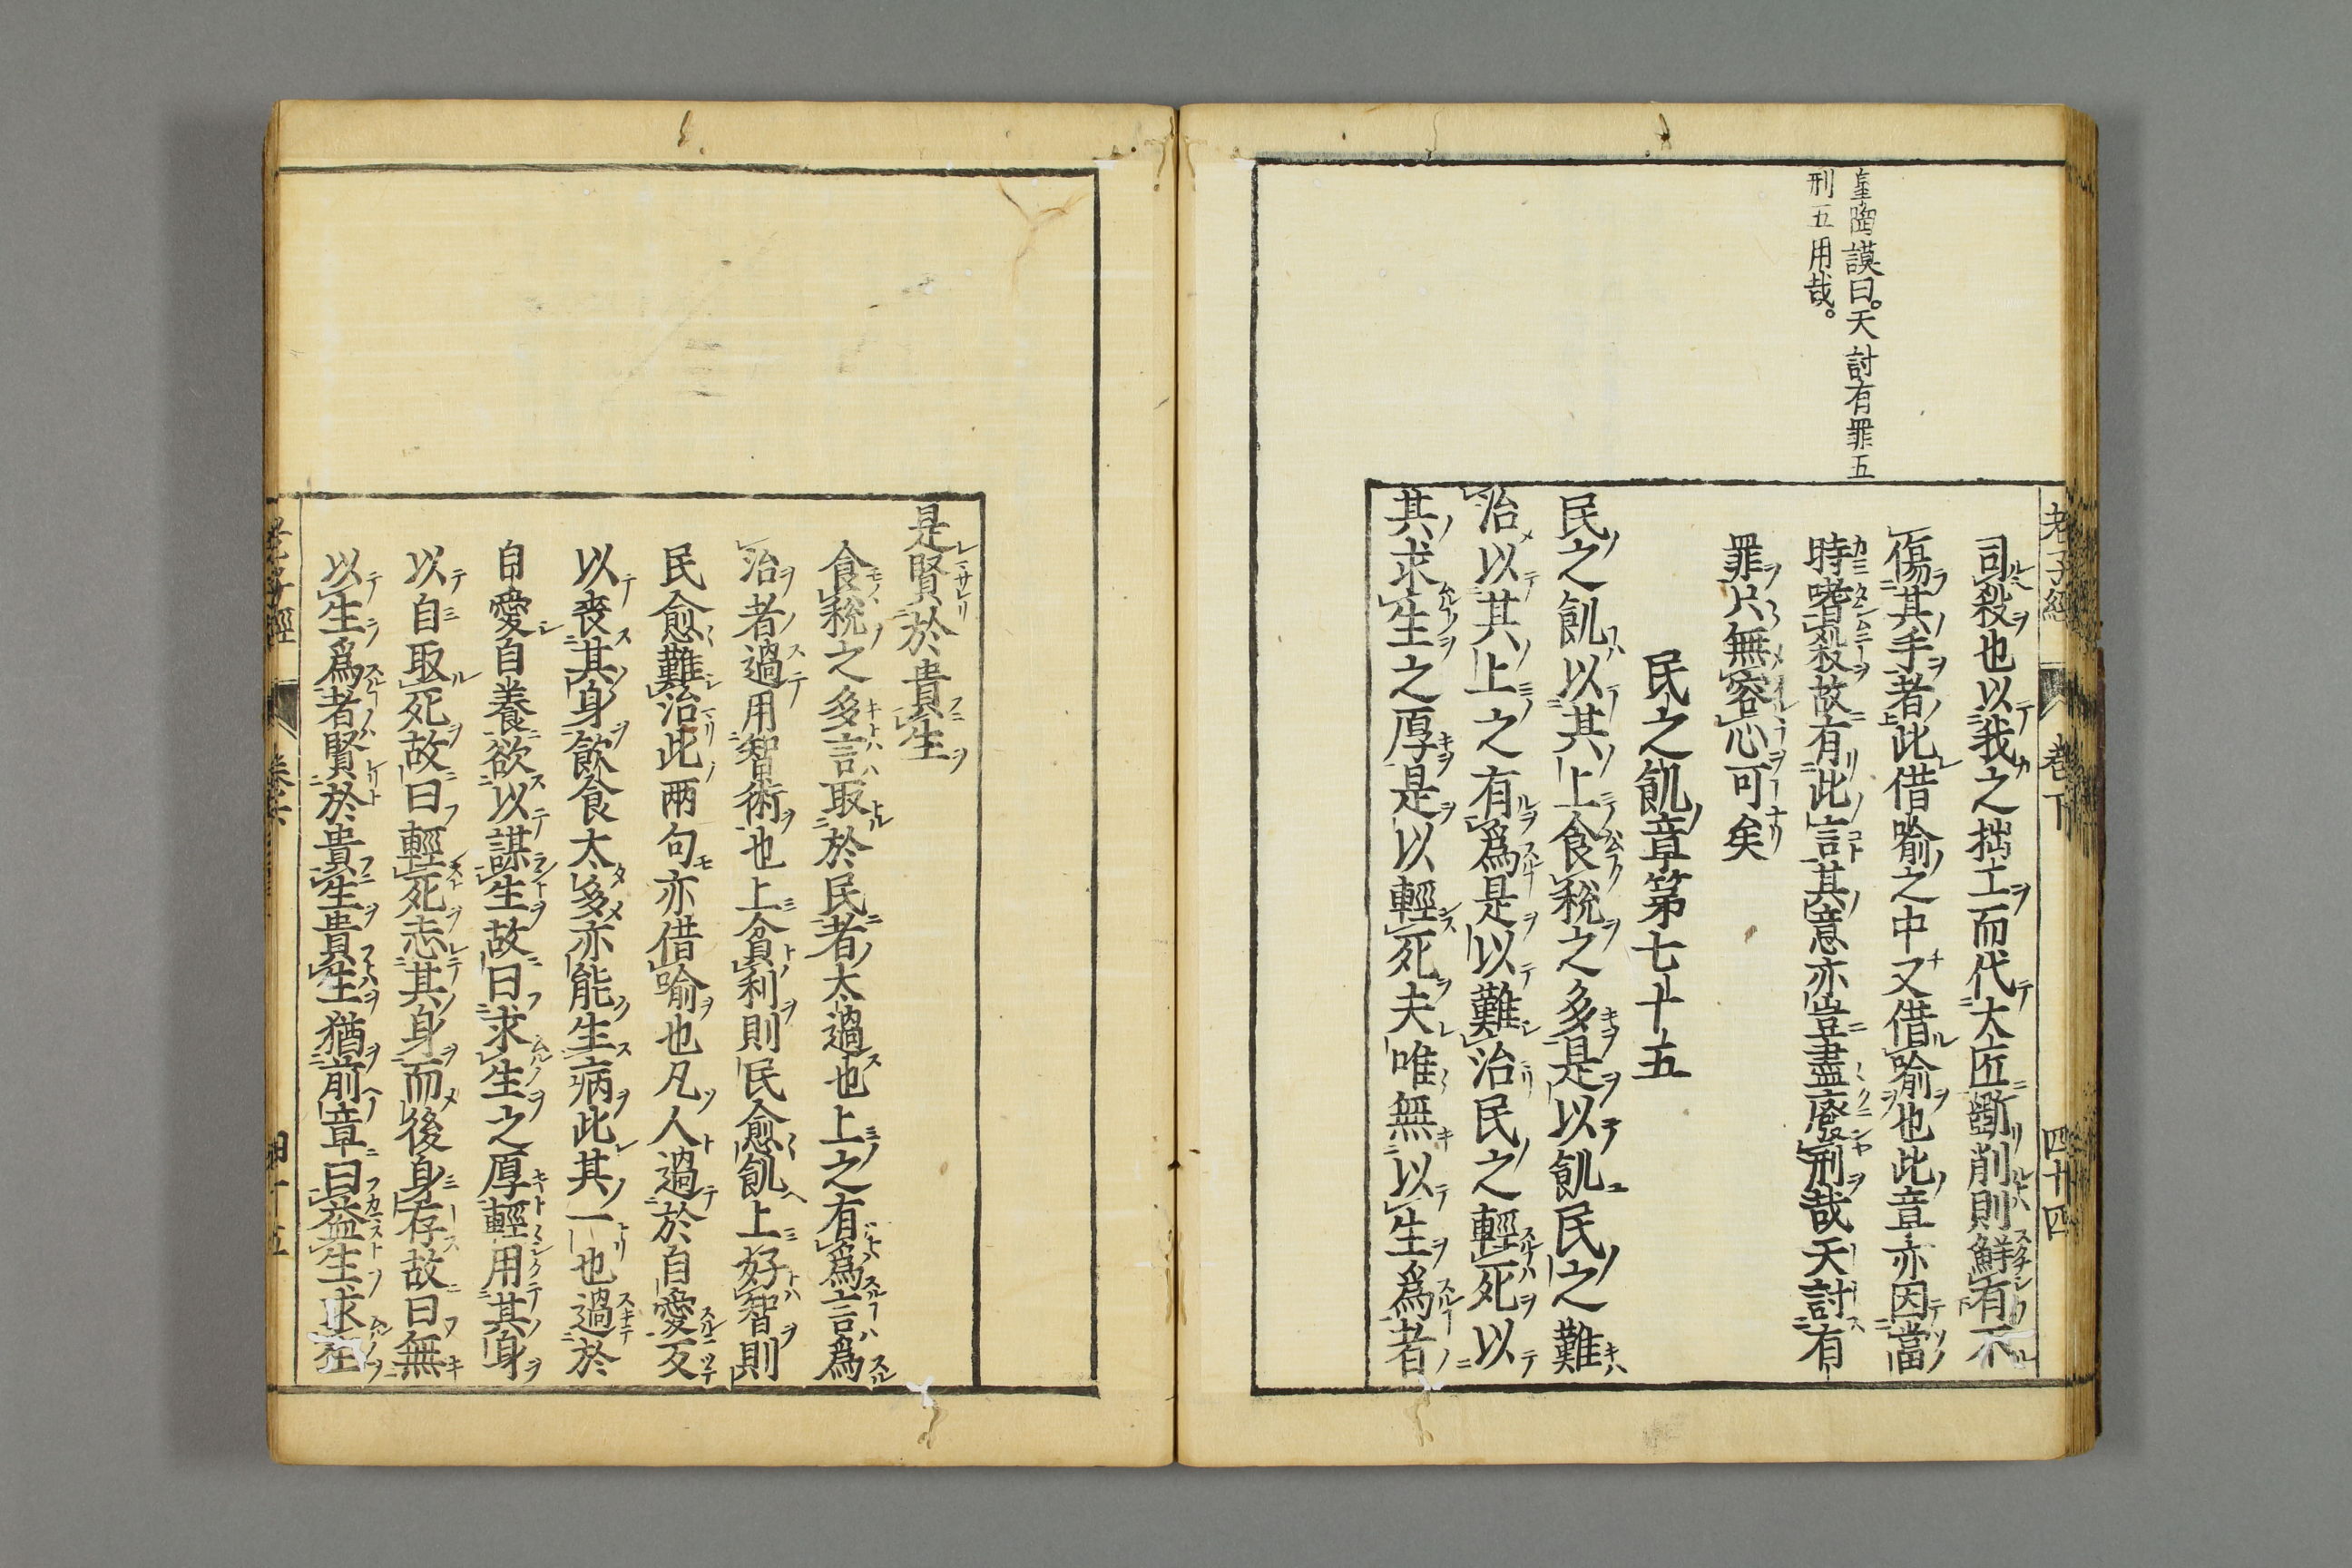 皐陶謨曰。天討有罪五
刑五用哉。
老子經 卷下 四十四
司殺也以我之拙工而代大匠斲削則鮮有不
傷其手者此借喻之中又借喻也此章亦因當
時嗜殺故有此言其意亦豈盡廢刑哉天討有
罪只無容心可矣
民之飢章第七十五
民之飢以其上食稅之多是以飢民之難
治以其上之有爲是以難治民之輕死以
其求生之厚是以輕死夫唯無以生爲者
是賢於貴生
食稅之多言取於民者太過也上之有爲言爲
治者過用智術也上貪利則民愈飢上好智則
民愈難治此兩句亦借喻也凡人過於自愛反
以喪其身飲食太多亦能生病此其一也過於
自愛自養欲以謀生故曰求生之厚輕用其身
以自取死故曰輕死忘其身而後身存故曰無
以生爲者賢於貴生貴生猶前章曰益生求生
老子經